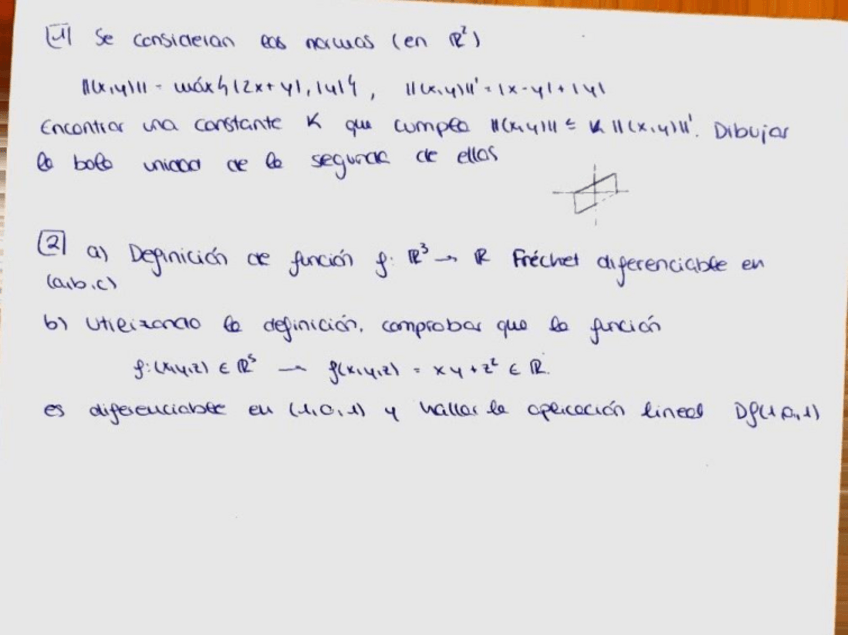 1 Se consideran las normas (en ℝ²)
||(x,y)|| = máx{|2x+y|, |y|}, ||(x,y)||' = |x-y| + |y|
Encontrar una constante K que cumpla ||(x,y)|| ≤ K ||(x,y)||'. Dibujar
la bola unidad de la segunda de ellas
2 a) Definición de función f: ℝ³ → ℝ Fréchet diferenciable en
(a,b,c)
b) Utilizando la definición, comprobar que la función
f: (x,y,z) ∈ ℝ³ → f(x,y,z) = xy + z² ∈ ℝ.
es diferenciable en (1,0,1) y hallar la aplicación lineal Df(1,0,1)